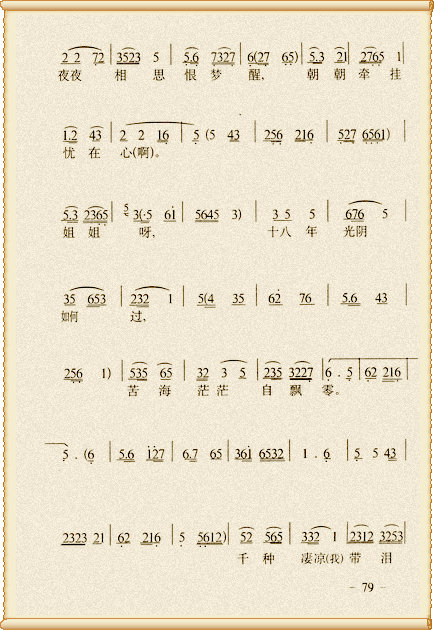 2 2 72 | 3523 5 | 5.6 7327 | 6(27 65) | 5.3 21 | 2765 1 |
夜夜 相 思 恨 梦 醒， 朝 朝 牵 挂
1.2 43 | 2 2 16 | 5 (5 43 | 256 216 | 527 6561) |
忧 在 心(啊)。
5.3 2365 | 5 3(·5 61 | 5645 3) | 3 5 5 | 676 5 |
姐 姐 呀， 十八 年 光阴
35 653 | 232 1 | 5(4 35 | 62 76 | 5.6 43 |
如何 过，
256 1) | 535 65 | 32 3 5 | 235 3227 | 6 . 5 | 62 216 |
苦 海 茫 茫 自 飘 零。
5 . (6 | 5.6 127 | 6.7 65 | 361 6532 | 1 . 6 | 5 5 43 |
2323 21 | 62 216 | 5 5612) | 52 565 | 332 1 | 2312 3253 |
千 种 凄凉(我) 带 泪
- 79 -